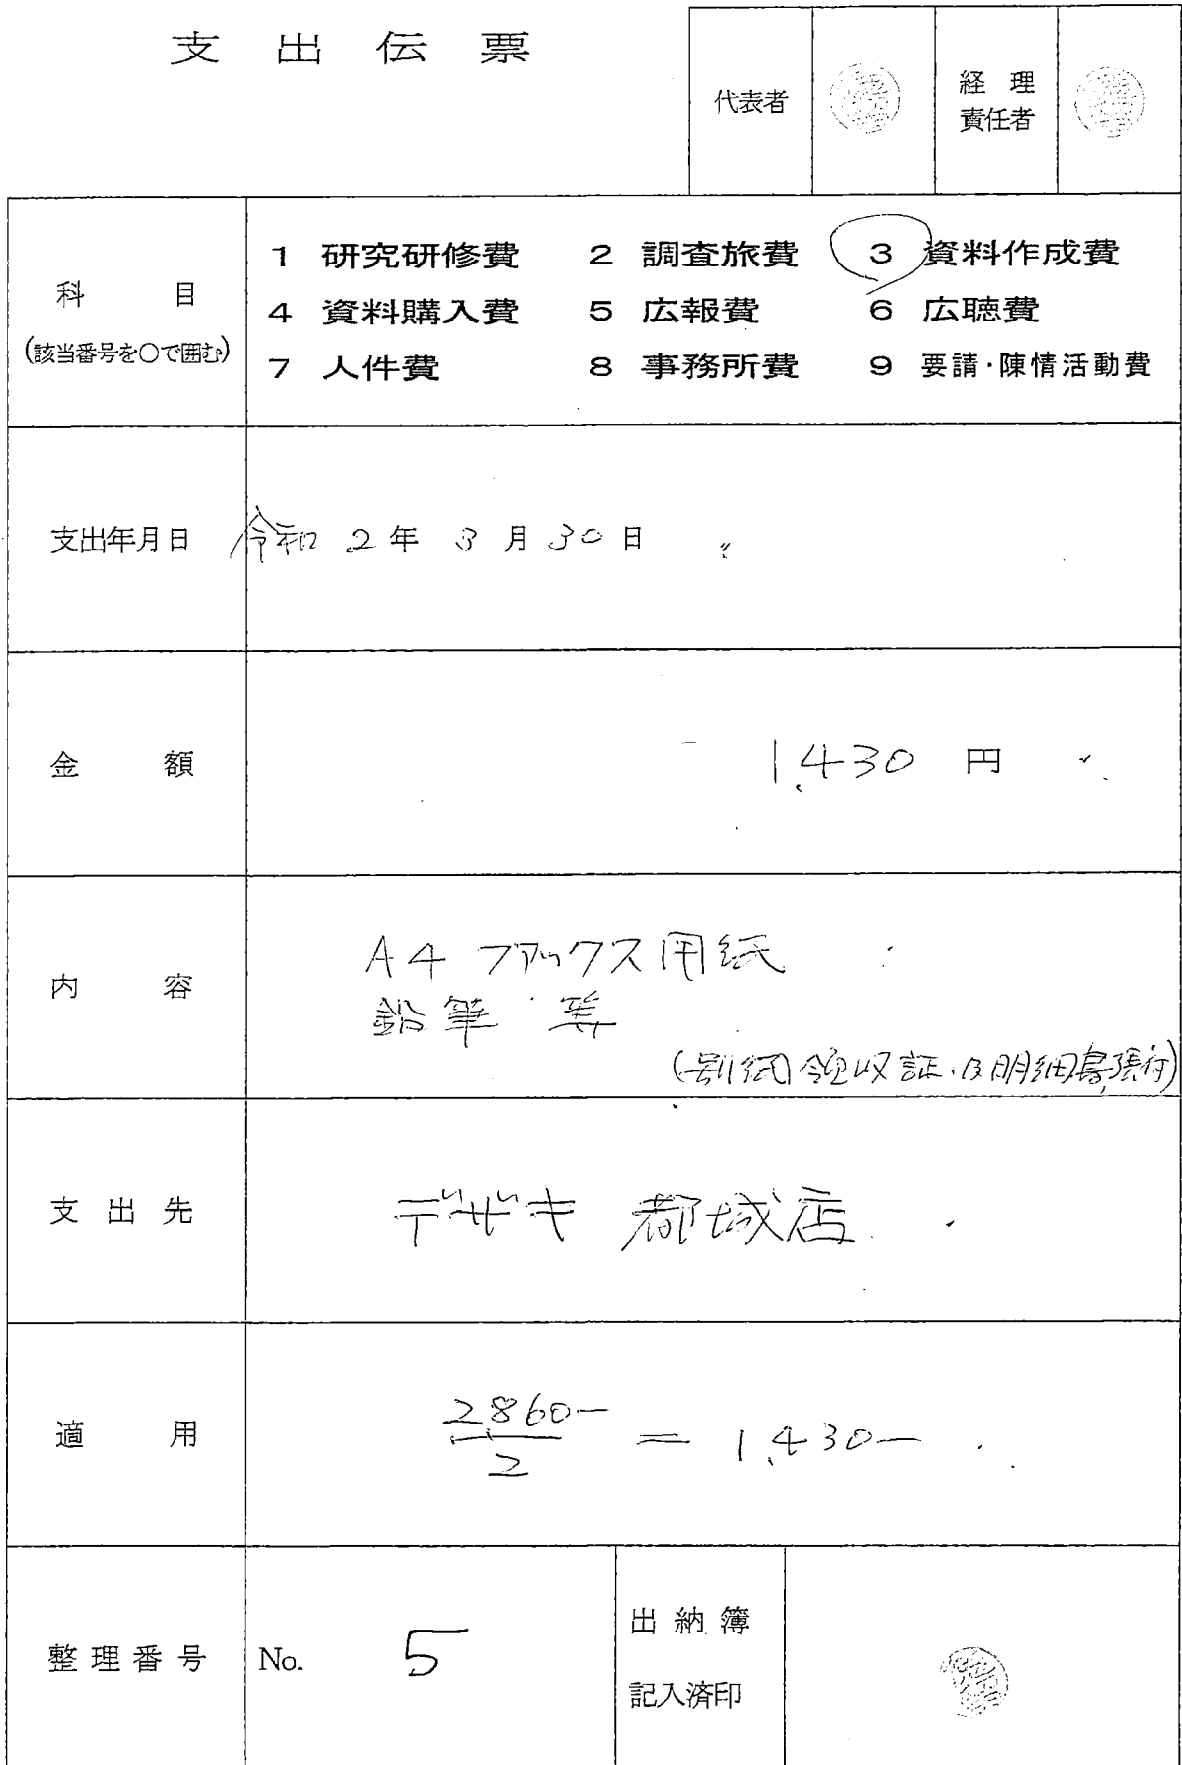 支出伝票
代表者
経理
責任者
科目
(該当番号を○で囲む)
1 研究研修費 2 調査旅費 3 資料作成費
4 資料購入費 5 広報費 6 広聴費
7 人件費 8 事務所費 9 要請・陳情活動費
支出年月日 令和 2年 3月 30日
金額 1,430 円
内容
A4 ファックス用紙
鉛筆 等
(別紙領収証・及明細書張付)
支出先 デザキ 都城店
適用
2,860-
2
= 1,430-
整理番号 No. 5
出納簿
記入済印